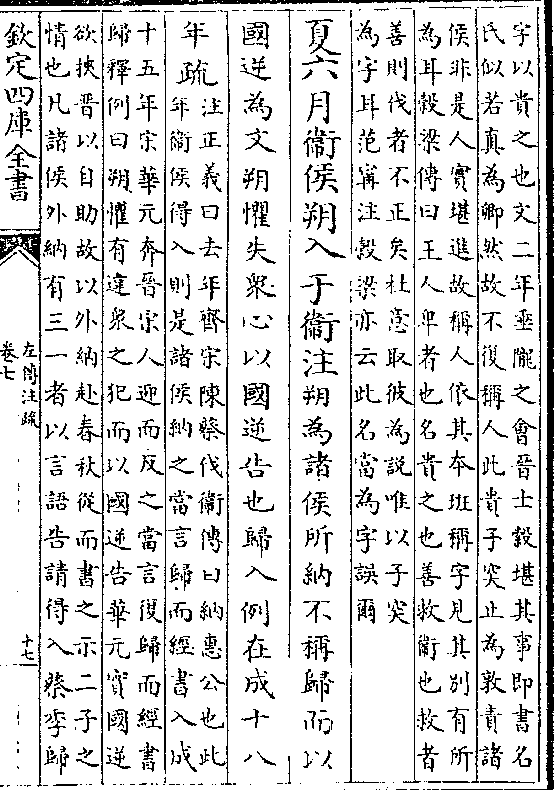 字以貴之也文二年垂隴之會晉士縠堪其事即書名
氏似若真為卿然故不復稱人此貴子突止為敦責諸
侯非是人實堪進故稱人依其本班稱字見其别有所
為耳穀梁傳曰王人卑者也名貴之也善救衞也救者
善則伐者不正矣杜意取彼為説唯以子突
為字耳范甯注穀梁亦云此名當為字誤爾
夏六月衞侯朔入于衞注朔為諸侯所納不稱歸而以
國逆為文朔懼失衆心以國逆告也歸入例在成十八
年疏注正義曰去年齊宋陳蔡伐衞傳曰納惠公也此
年衞侯得入則是諸侯納之當言歸而經書入成
十五年宋華元奔晉宋人迎而反之當言復歸而經書
歸釋例曰朔懼有違衆之犯而以國逆告華元實國逆
欲挾晉以自助故以外納赴春秋從而書之示二子之
情也凡諸侯外納有三一者以言語告請得入蔡季歸
欽定四庫全書
左傳注疏
卷七
十七